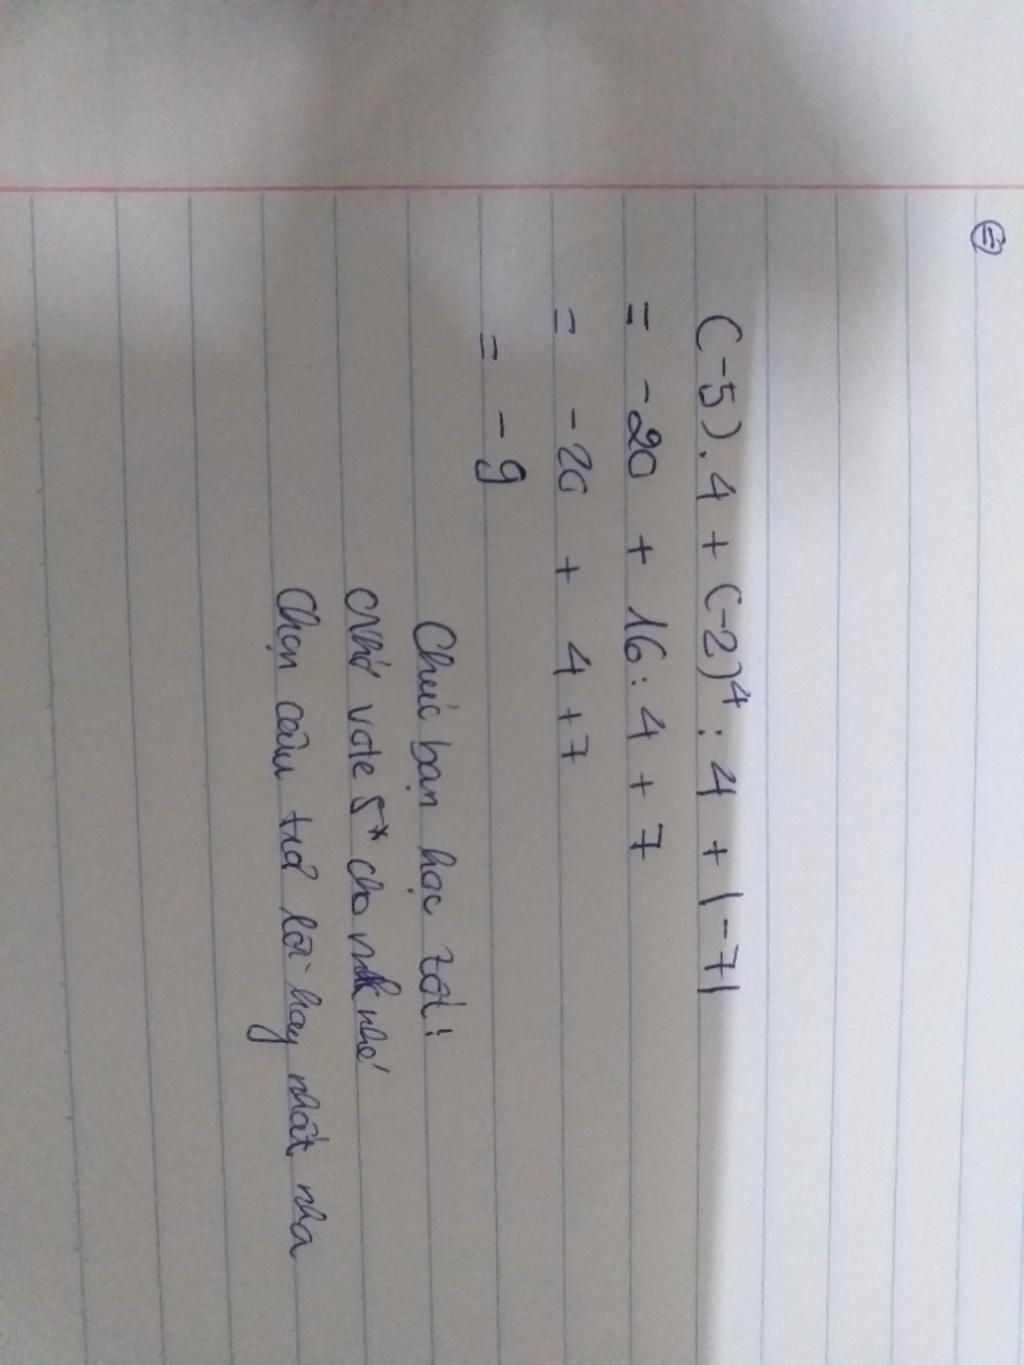 (-5).4 + (-2)⁴ : 4 + |-7|
= -20 + 16 : 4 + 7
= -20 + 4 + 7
= -9
Chúc bạn học tốt!
Nhớ vote 5* cho mk nhé
Chọn câu trả lời hay nhất nha